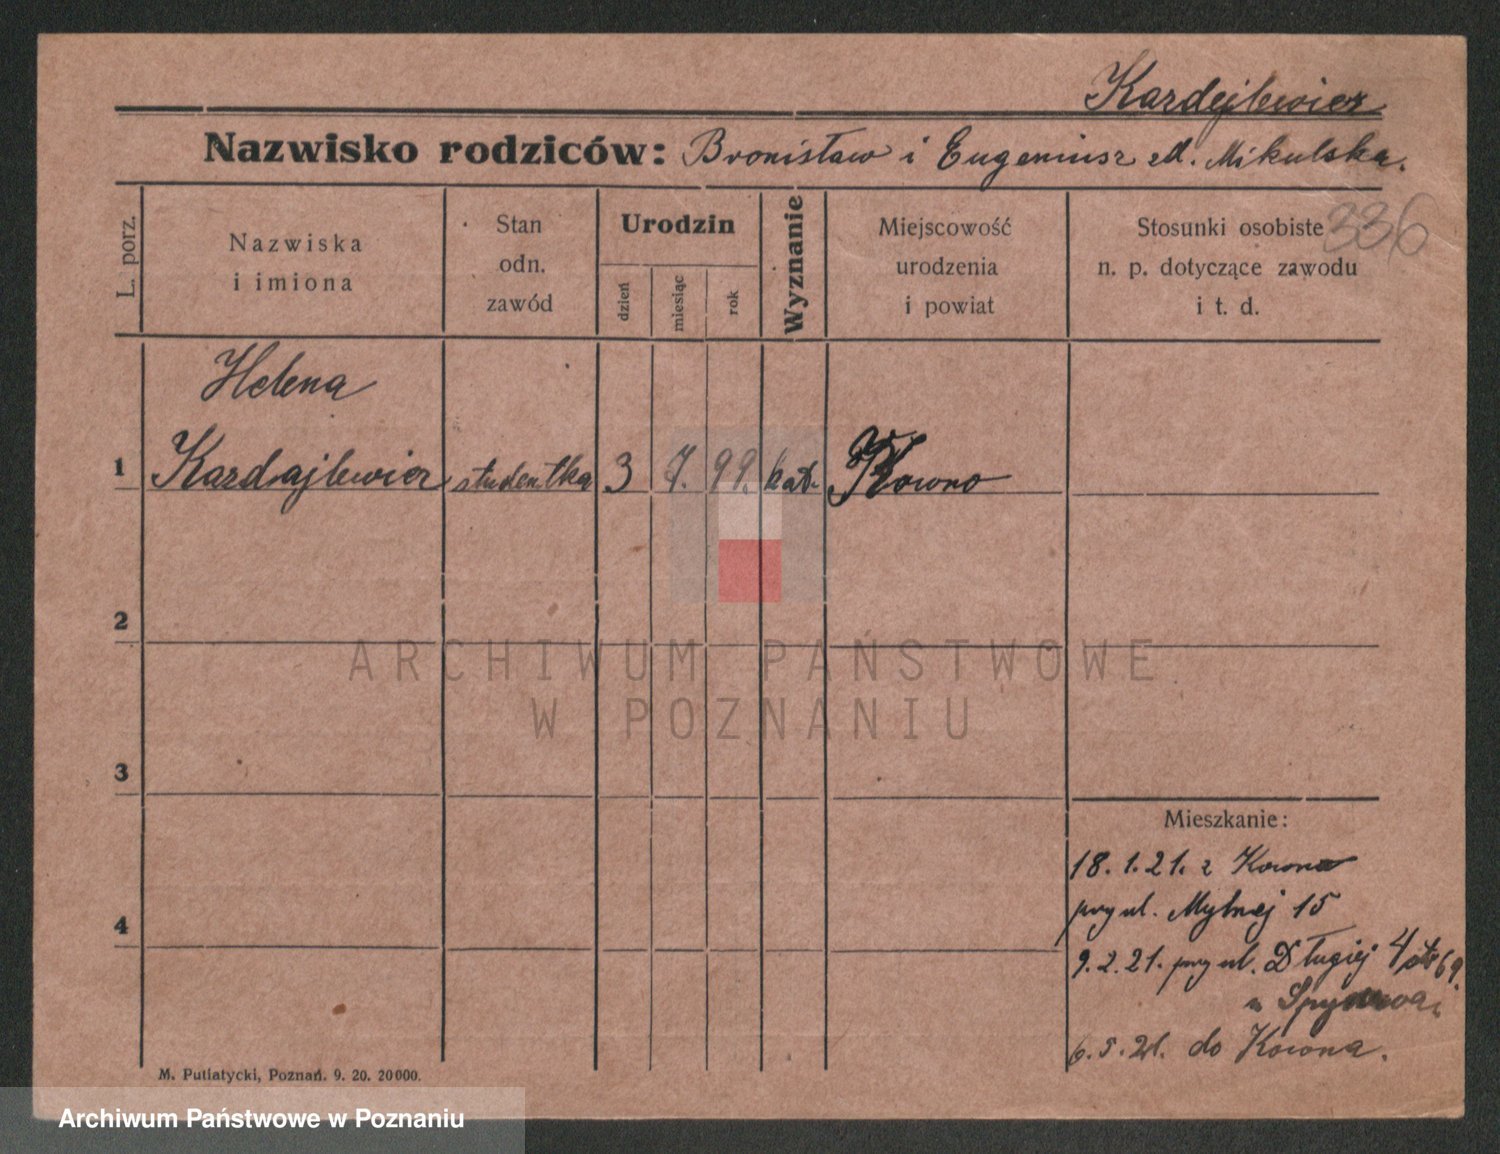 Kardejlewicz
Nazwisko rodziców: Bronisław i Eugeniusz zd. Mikulska.
336
L. porz.
Nazwiska
i imiona
Stan
odn.
zawód
Urodzin
dzień
miesiąc
rok
Wyznanie
Miejscowość
urodzenia
i powiat
Stosunki osobiste
n. p. dotyczące zawodu
i t. d.
Helena
1 Kardajlewicz studentka 3 7. 99. kat. Kowno
2
ARCHIWUM PAŃSTWOWE
W POZNANIU
3
Mieszkanie:
18. 1. 21. z Kowna
przy ul. Mylnej 15
4
9. 2. 21. przy ul. Długiej 4
u
6. 5. 21. do Kowna.
M. Putiatycki, Poznań. 9. 20. 20000.
Archiwum Państwowe w Poznaniu